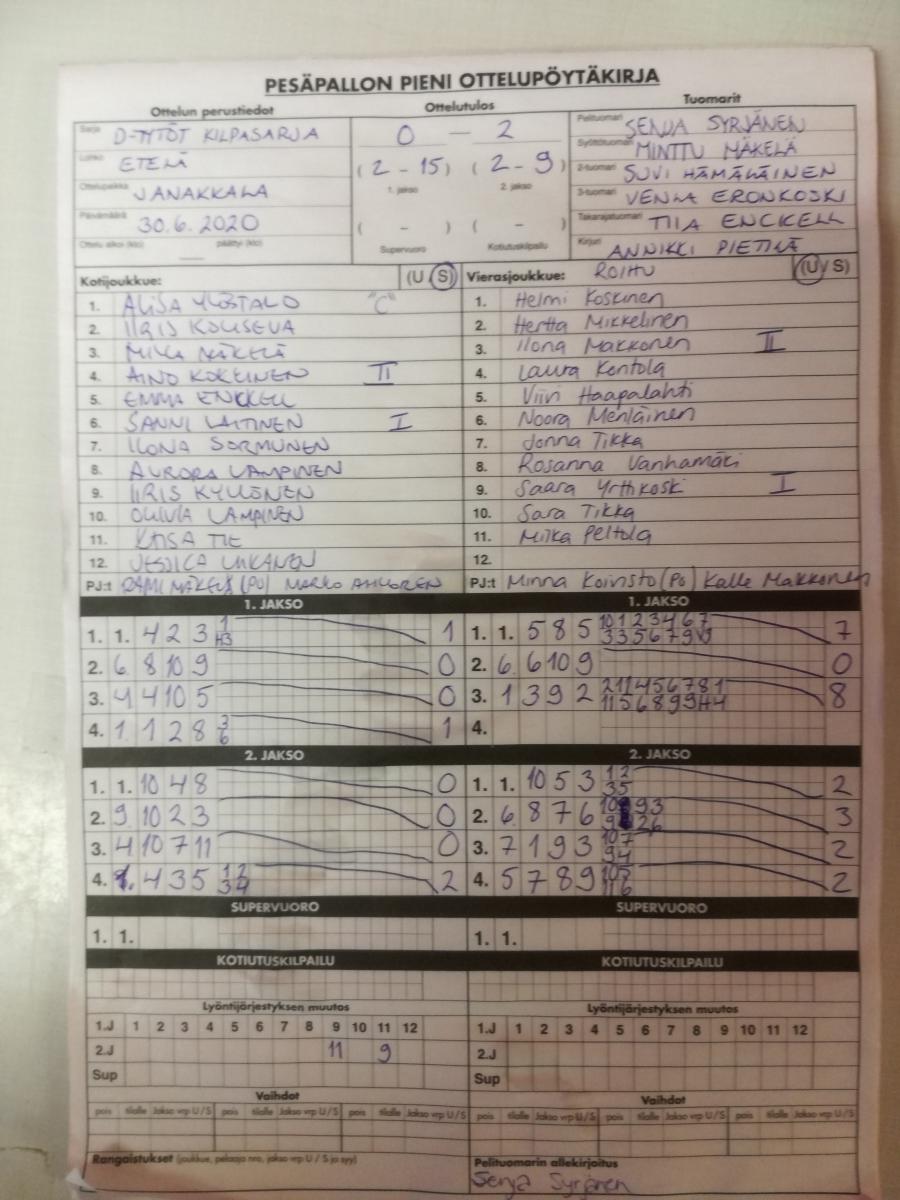 PESÄPALLON PIENI OTTELUPÖYTÄKIRJA
Ottelun perustiedot Ottelutulos Tuomarit
Sarja D-TYTÖT KILPASARJA 0 – 2 Pelituomari SENJA SYRJÄNEN
Lohko ETELÄ (2 – 15) (2 – 9) Syöttötuomari MINTTU MÄKELÄ
Ottelupaikka JANAKKALA 1. jakso 2. jakso 2-tuomari SUVI HÄMÄLÄINEN
Päivämäärä 30.6.2020 ( - ) ( - ) 3-tuomari VENLA ERONKOSKI
Takarajatuomari TIIA ENCKELL
Ottelu alkoi (klo) päättyi (klo) Supervuoro Kotiutuskilpailu Kirjuri ANNIKKI PIETILÄ
Kotijoukkue: (U / S) Vierasjoukkue: ROIHU (U / S)
1. ALISA YLÖSTALO "C" 1. Helmi Koskinen
2. IIRIS KOLISEVA 2. Hertta Mikkelinen
3. MILLA MÄKELÄ 3. Ilona Makkonen II
4. AINO KOKEINEN II 4. Laura Kontola
5. EMMA ENKKELL 5. Viivi Haapalahti
6. SANNI LAITINEN I 6. Noora Menläinen
7. ILONA SORMUNEN 7. Jonna Tikka
8. AURORA LAMPINEN 8. Rosanna Vanhamäki
9. IIRIS KYLLÖNEN 9. Saara Yrttikoski I
10. OLIVIA LAMPINEN 10. Sara Tikka
11. KAISA TIE 11. Milka Peltola
12. JESSICA LIIKANEN 12.
PJ:t RAMI MÄKELÄ (PJ) MARKO AHLOREN PJ:t Minna Koivisto (PJ) Kalle Makkonen
1. JAKSO 1. JAKSO
1. 1. 4 2 3 1 H3 1 1. 1. 5 8 5 10 1 2 3 4 6 7 3 3 5 6 7 9 7
2. 6. 8 10 9 0 2. 6. 6 10 9 0
3. 4. 4 10 5 0 3. 1 3 9 2 2 1 1 4 5 6 7 8 1 11 5 6 8 9 9 H4 8
4. 1. 1 2 8 3 6 1 4.
2. JAKSO 2. JAKSO
1. 1. 10 4 8 0 1. 1. 10 5 3 1 2 3 5 2
2. 9. 10 2 3 0 2. 6. 8 7 6 3
3. 4. 10 7 11 0 3. 7 1 9 3 10 7 9 4 2
4. 4 3 5 1 2 3 4 2 4. 5 7 8 9 10 5 11 6 2
SUPERVUORO SUPERVUORO
1. 1. 1. 1.
KOTIUTUSKILPAILU KOTIUTUSKILPAILU
Lyöntijärjestyksen muutos Lyöntijärjestyksen muutos
1.J 1 2 3 4 5 6 7 8 9 10 11 12 1.J 1 2 3 4 5 6 7 8 9 10 11 12
2.J 11 9 2.J
Sup Sup
Vaihdot Vaihdot
pois tilalle Jakso vrp U / S pois tilalle Jakso vrp U / S pois tilalle Jakso vrp U / S pois tilalle Jakso vrp U / S pois tilalle Jakso vrp U / S pois tilalle Jakso vrp U / S
Rangaistukset (joukkue, pelaaja nro, jakso vrp U / S ja syy) Pelituomarin allekirjoitus
Senja Syrjänen